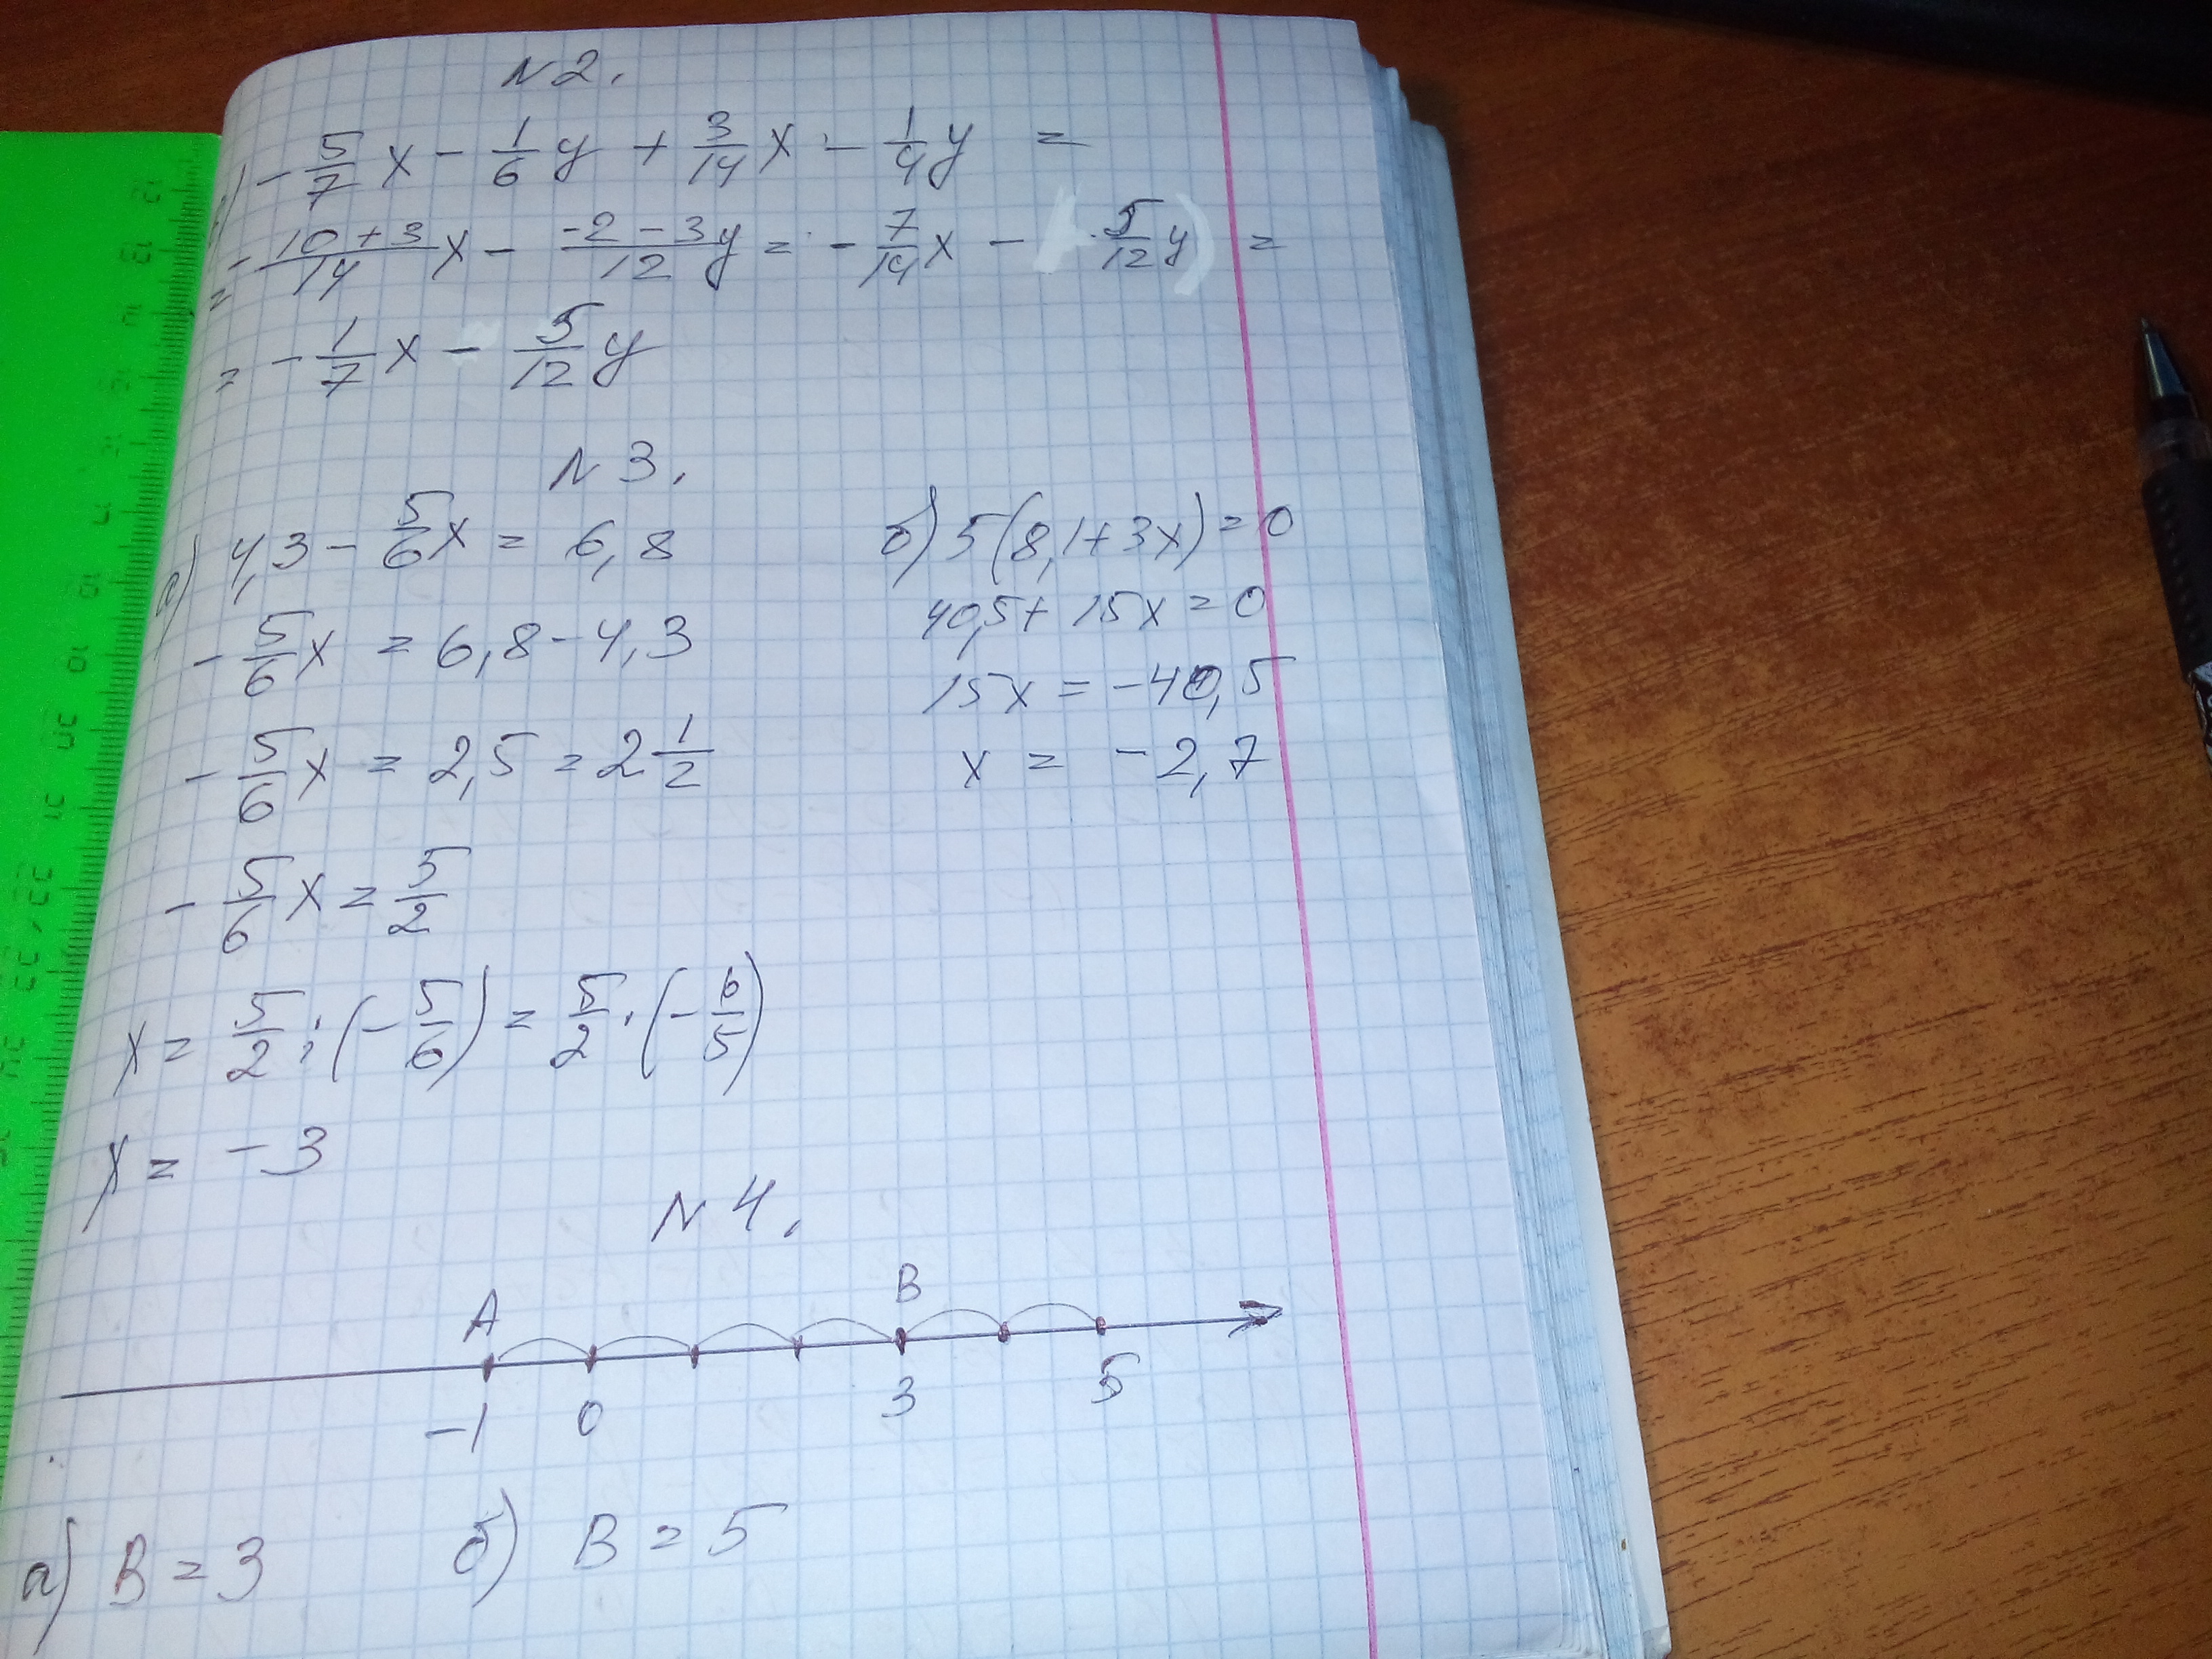 N2.
) - 5/7 x - 1/6 y + 3/14 x - 1/4 y =
= - 10+3/14 x - -2-3/12 y = - 7/14 x - 5/12 y =
= - 1/7 x - 5/12 y
N3.
а) 4,3 - 5/6 x = 6,8
- 5/6 x = 6,8 - 4,3
- 5/6 x = 2,5 = 2 1/2
- 5/6 x = 5/2
x = 5/2 : (- 5/6) = 5/2 · (- 6/5)
x = -3
б) 5(8,1+3x)=0
40,5+ 15x = 0
15x = -40,5
x = -2,7
N4.
A B
-1 0 3 5
а) B = 3 б) B = 5